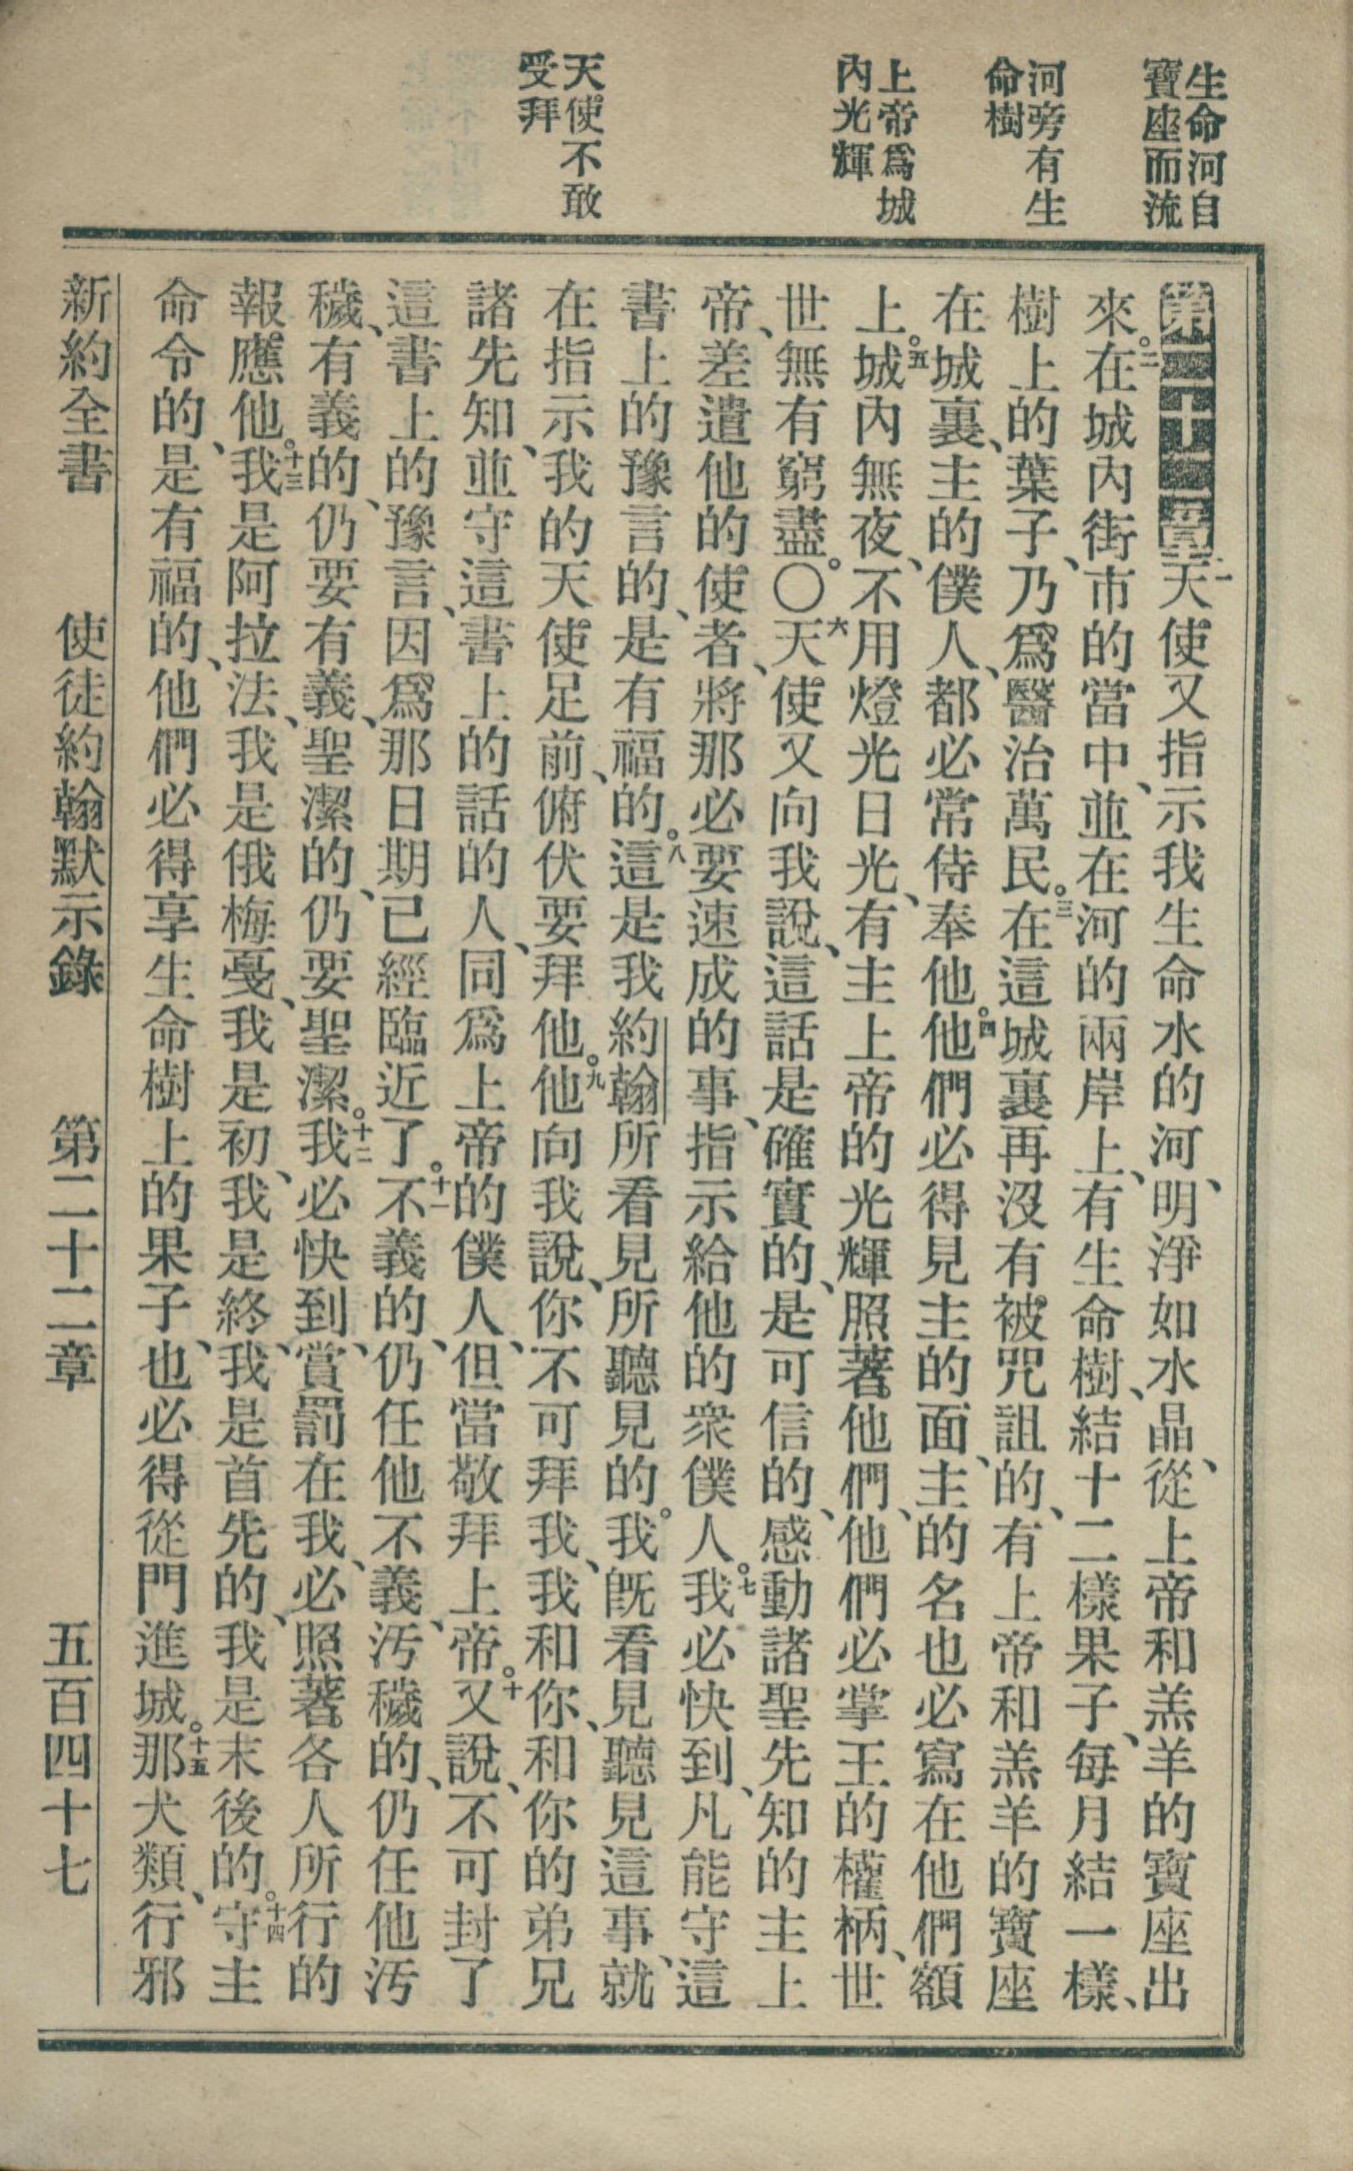 生命河自
寶座而流
河旁有生
命樹
上帝爲城
內光輝
天使不敢
受拜
第二十二章一天使又指示我生命水的河、明淨如水晶、從上帝和羔羊的寶座出
來。二在城內街市的當中、並在河的兩岸上、有生命樹、結十二樣果子、每月結一樣、
樹上的葉子、乃爲醫治萬民。三在這城裏再沒有被咒詛的、有上帝和羔羊的寶座
在城裏、主的僕人、都必常侍奉他。四他們必得見主的面、主的名也必寫在他們額
上。五城內無夜、不用燈光日光、有主上帝的光輝照著他們、他們必掌王的權柄、世
世無有窮盡。〇六天使又向我說、這話是確實的、是可信的、感動諸聖先知的主上
帝、差遣他的使者、將那必要速成的事、指示給他的衆僕人。七我必快到、凡能守這
書上的豫言的、是有福的。八這是我約翰所看見所聽見的。我旣看見聽見這事、就
在指示我的天使足前、俯伏要拜他。九他向我說、你不可拜我、我和你、和你的弟兄
諸先知、並守這書上的話的人、同爲上帝的僕人、但當敬拜上帝。十又說、不可封了
這書上的豫言、因爲那日期已經臨近了。十一不義的、仍任他不義、汚穢的、仍任他汚
穢、有義的、仍要有義、聖潔的、仍要聖潔。十二我必快到、賞罰在我、必照著各人所行的
報應他。十三我是阿拉法、我是俄梅戞、我是初、我是終、我是首先的、我是末後的。十四守主
命令的、是有福的、他們必得享生命樹上的果子、也必得從門進城。十五那犬類、行邪
新約全書　使徒約翰默示錄　第二十二章　五百四十七